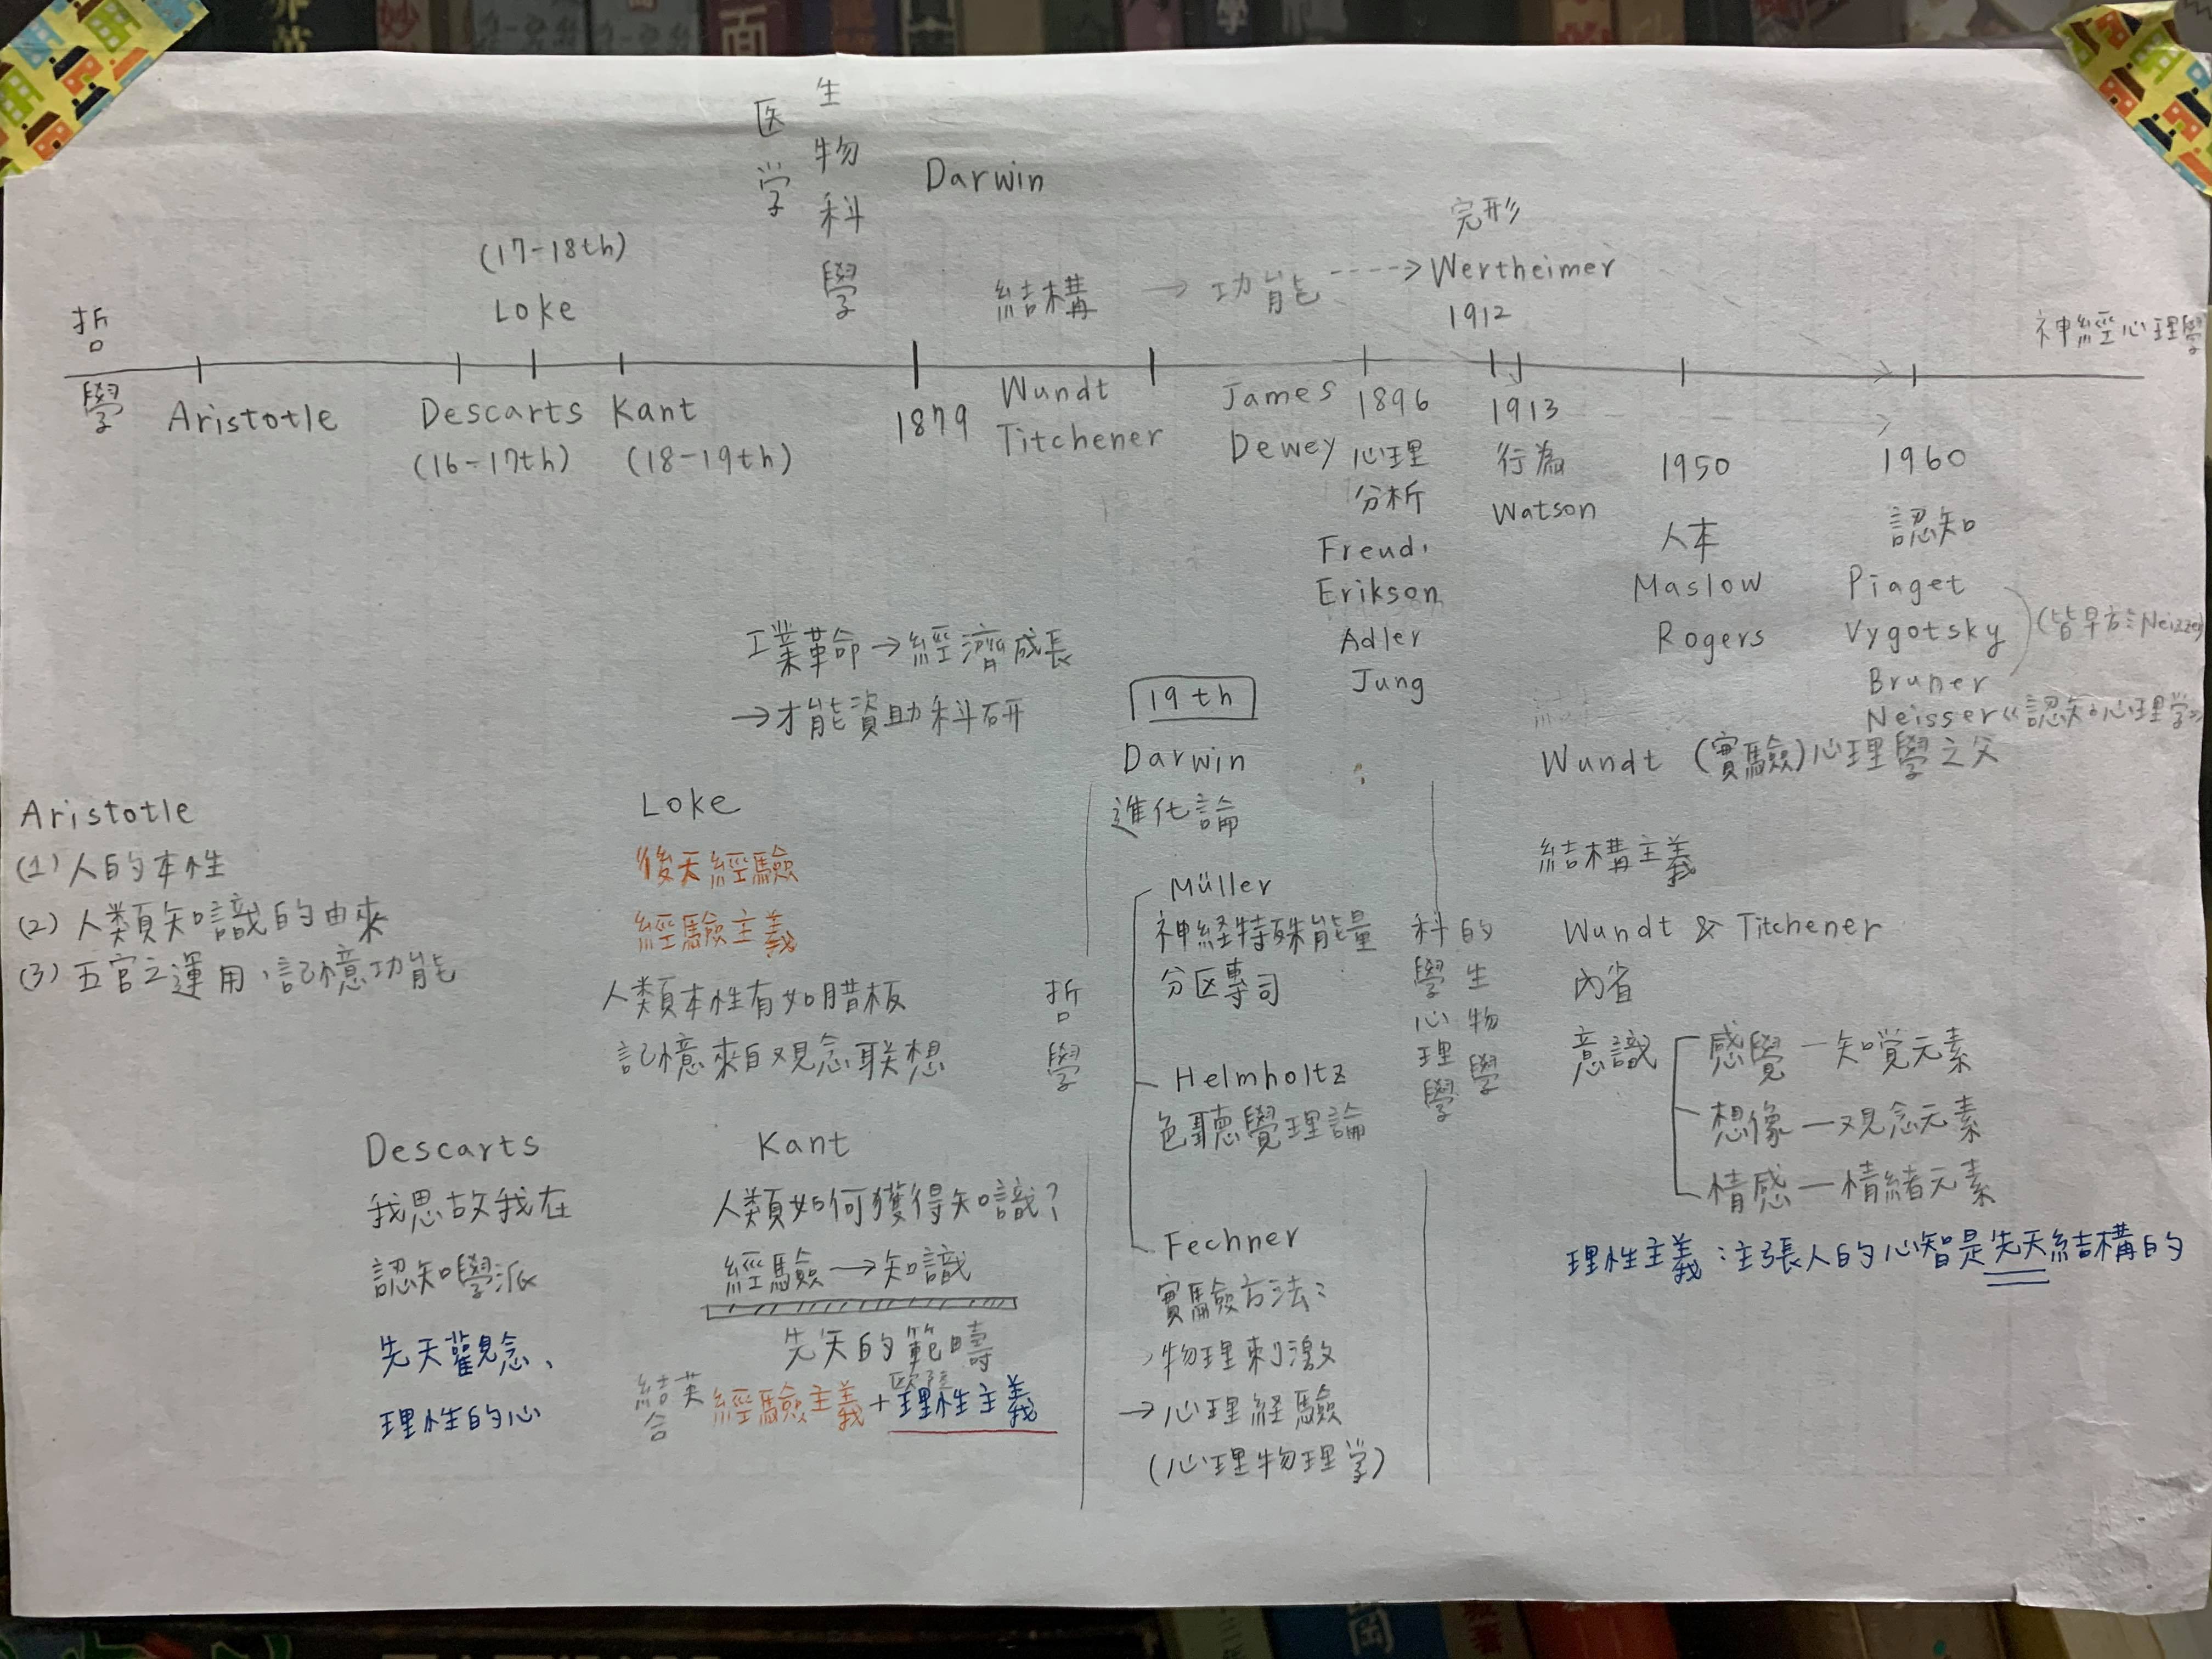 医学
生物科學
Darwin
(17-18th)
Loke
完形
結構 → 功能 ----> Wertheimer
1912
神經心理學
哲學
Aristotle
Descarts
(16-17th)
Kant
(18-19th)
1879
Wundt
Titchener
James
Dewey
1896
心理
分析
Freud,
Erikson
Adler
Jung
1913
行為
Watson
1950
人本
Maslow
Rogers
1960
認知
Piaget
Vygotsky
Bruner
Neisser《認知心理学》
工業革命→經濟成長
→才能資助科研
Aristotle
(1) 人的本性
(2) 人類知識的由來
(3) 五官之運用、記憶功能
Loke
後天經驗
經驗主義
人類本性有如腊板
記憶來自观念联想
Descarts
我思故我在
認知學派
先天觀念、
理性的心
Kant
人類如何獲得知識?
經驗→知識
先天的範疇
結合
英經驗主義+歐陸理性主義
哲學
19th
Darwin
進化論
Müller
神経特殊能量
分区專司
Helmholtz
色聽覺理論
Fechner
實驗方法:
物理刺激
→心理経驗
(心理物理学)
科學心理學
的生物學
Wundt (實驗)心理學之父
結構主義
Wundt & Titchener
內省
意識
感覺—知覚元素
想像—观念元素
情感—情緒元素
理性主義:主張人的心智是先天結構的